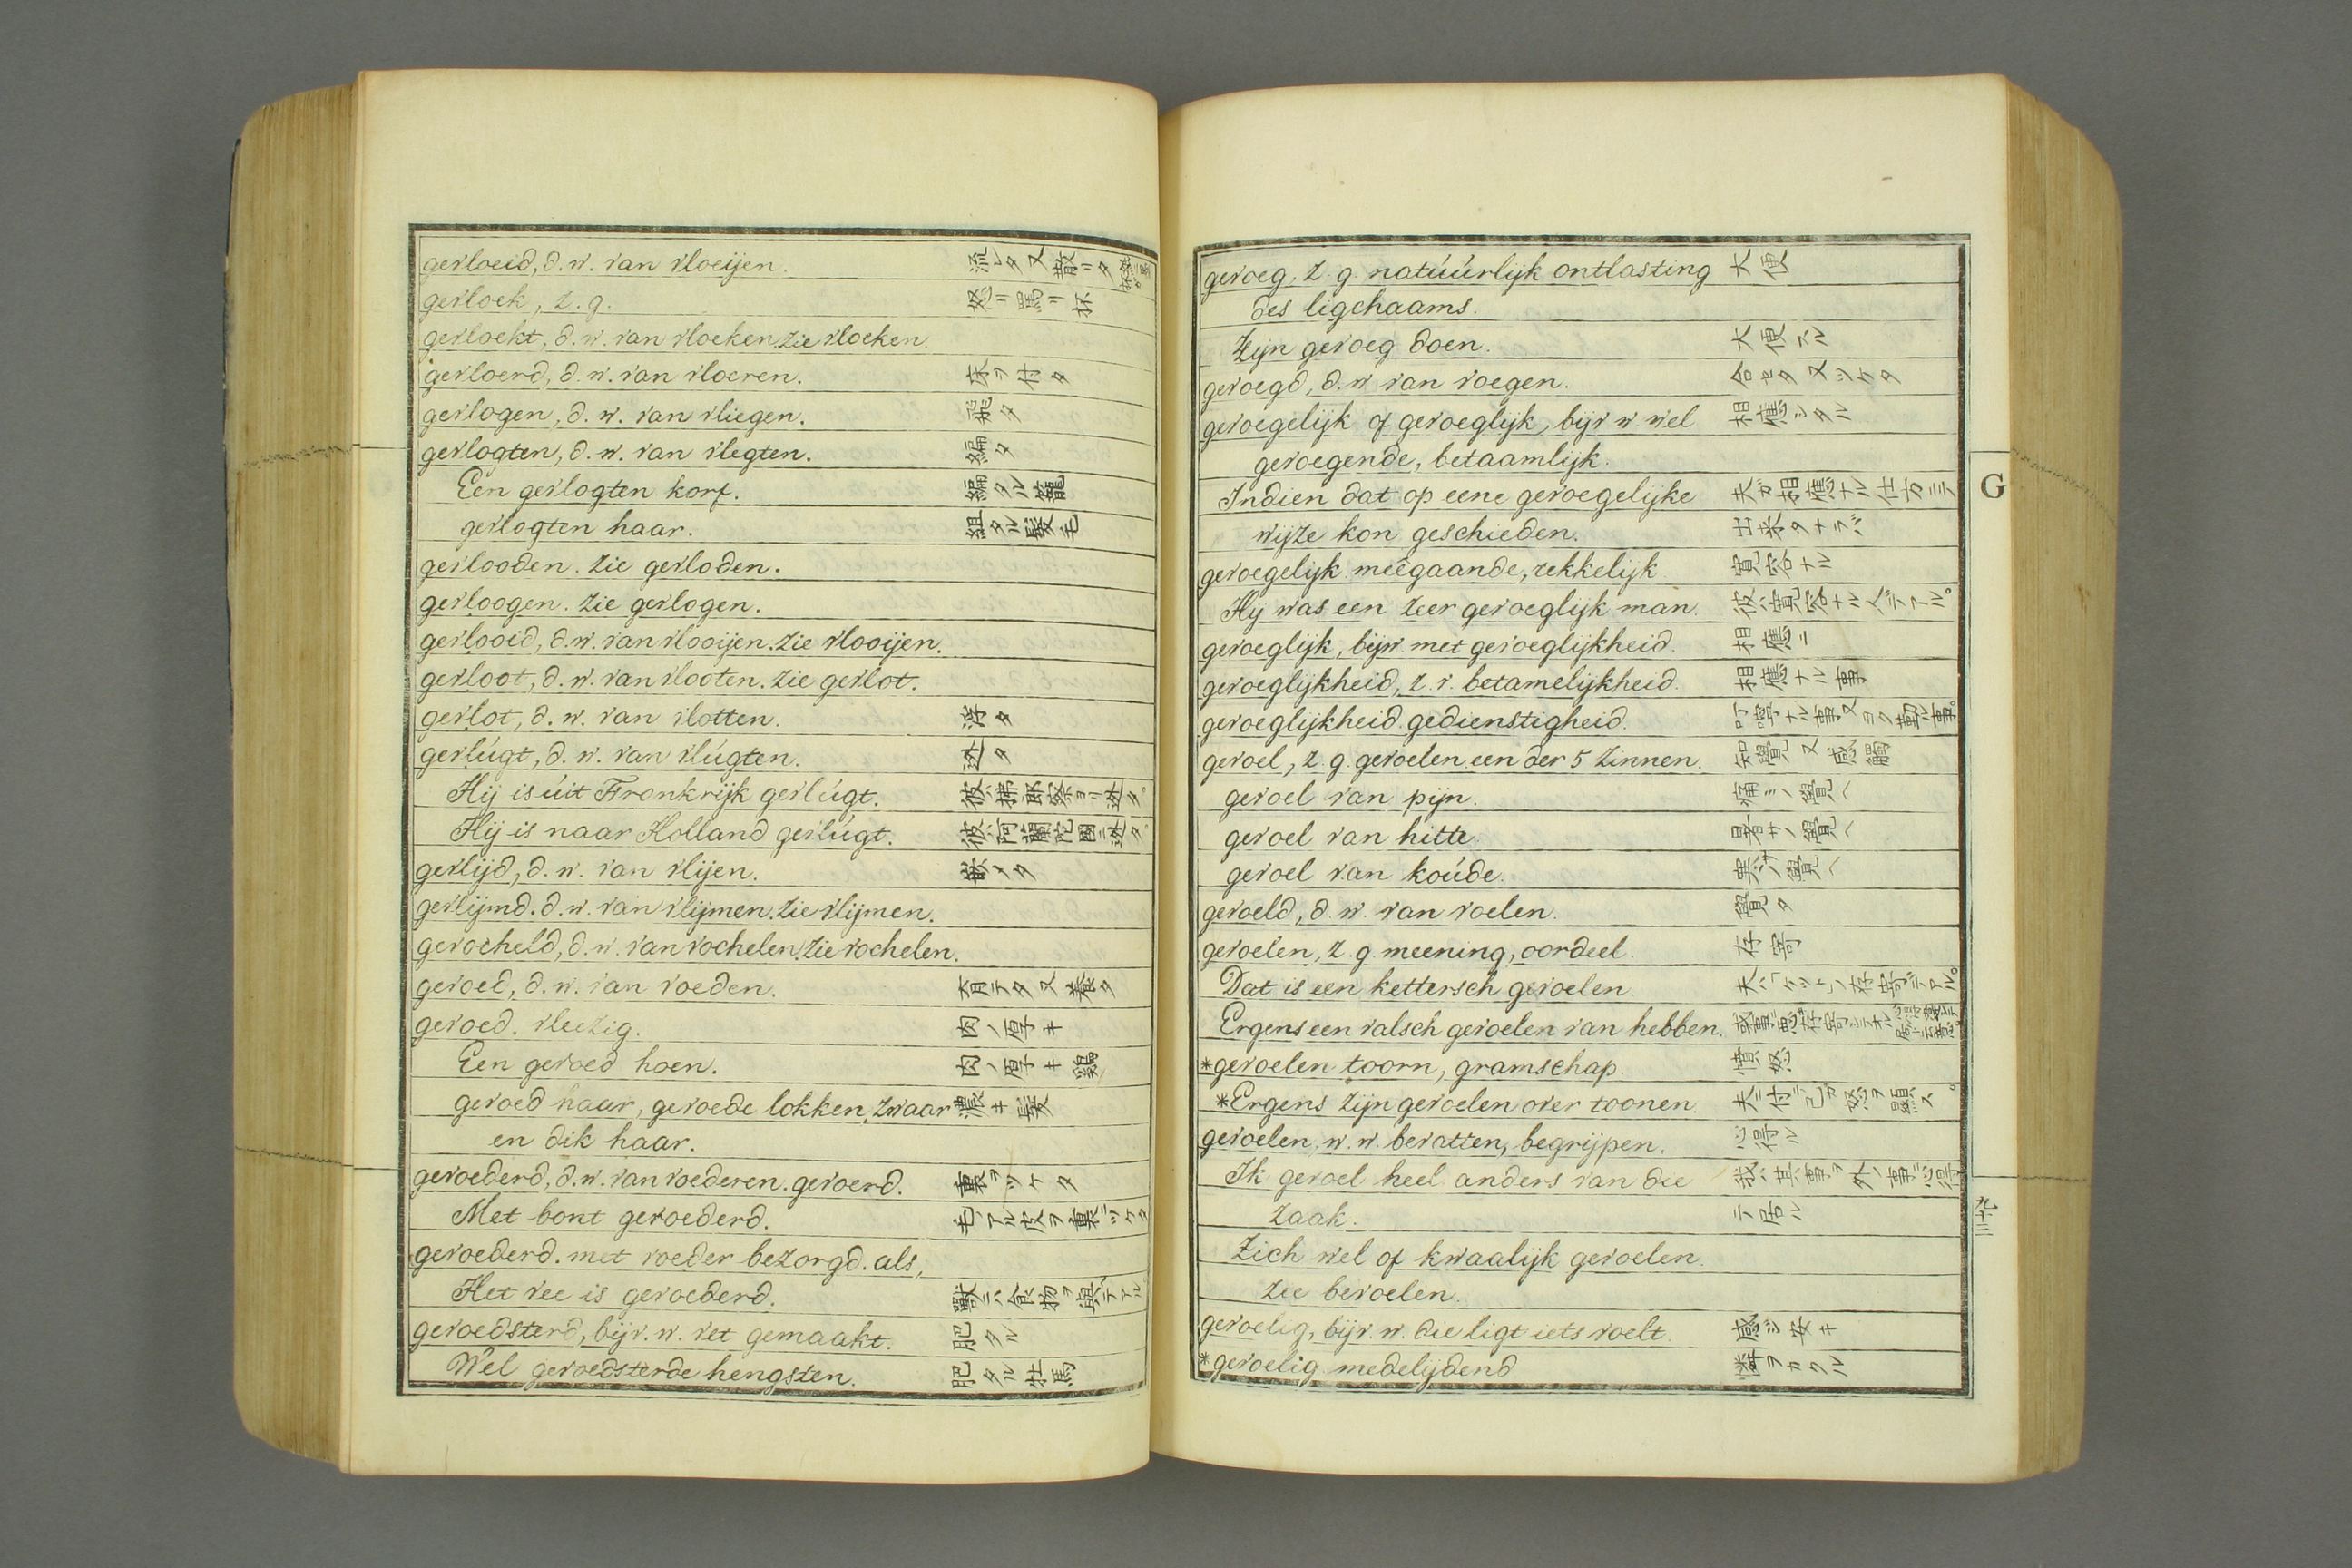 gevloeid, d.w. van vloeijen. 流レタ又散リタ
gevloek, z.g. 怒リ罵リ抔
gevloekt, d.w. van vloeken. zie vloeken.
gevloerd, d.w. van vloeren. 床ヲ付タ
gevlogen, d.w. van vliegen. 飛タ
gevlogten, d.w. van vlegten. 編タ
Een gevlogten korf. 編タル籠
gevlogten haar. 組タル髪毛
gevlooden. zie gevloden.
gevloogen. zie gevlogen.
gevlooid, d.w. van vlooijen. zie vlooijen.
gevloot, d.w. van vlooten. zie gevlot.
gevlot, d.w. van vlotten. 浮タ
gevlúgt, d.w. van vlúgten. 迯タ
Hij is úit Frankrijk gevlúgt. 彼ハ拂郎察ヨリ迯タ
Hij is naar Holland gevlúgt. 彼ハ阿蘭陀國ニ迯タ
gevlijd, d.w. van vlijen. 嵌メタ
gevlijmd. d.w. van vlijmen. zie vlijmen.
gevocheld, d.w. van vochelen. zie vochelen.
gevoed, d.w. van voeden. 育テタ又養タ
gevoed. vleezig. 肉ノ厚キ
Een gevoed hoen. 肉ノ厚キ鶏
gevoed haar, gevoede lokken, zwaar 濃キ髪
en dik haar.
gevoederd, d.w. van voederen. gevoerd. 裏ヲツケタ
Met bont gevoederd. 毛ノアル皮ヲ裏ニツケタ
gevoederd. met voeder bezorgd. als,
Het vee is gevoederd. 獣ニハ食物ヲ與テアル
gevoedsterd, bijv.w. vet gemaakt. 肥タル
Wel gevoedsterde hengsten. 肥タル牡馬
gevoeg, z.g. natúúrlijk ontlasting 大便
des ligchaams.
Zijn gevoeg doen. 大便スル
gevoegd, d.w van voegen. 合セタ又ツケタ
gevoegelijk of gevoeglijk, bijv w wel 相應シタル
gevoegende, betaamlijk.
Indien dat op eene gevoegelijke 夫ガ相應ナル仕方ニテ
wijze kon geschieden. 出来タナラバ
gevoegelijk. meêgaande, rekkelijk 寛容ナル
Hij was een zeer gevoeglijk man. 彼ハ寛容ナル人デアル。
gevoeglijk, bijw. met gevoeglijkheid. 相應ニ
gevoeglijkheid, z.v. betamelijkheid. 相應ナル事
gevoeglijkheid. gedienstigheid. 叮嚀ナル事又ヨク勤ル事。
gevoel, z.g. gevoelen. een der 5 zinnen. 知覺又感觸
gevoel van pijn. 痛ミノ覺ヘ
gevoel van hitte. 暑サノ覺ヘ
gevoel van koúde. 寒サノ覺ヘ
gevoeld, d.w. van voelen. 覺タ
gevoelen, z.g. meening, oordeel. 存寄
Dat is een kettersch gevoelen. 夫ハ「ケットル」ノ存寄デアル。
Ergens een valsch gevoelen van hebben. 或事ニ悪キ存寄ヲシテオル
*gevoelen toorn, gramschap. 憤怒
*Ergens zijn gevoelen over toonen. 夫ニ付テ己ガ怒ヲ顕ス。
gevoelen. w.w. bevatten, begrijpen. 心得ル
Ik gevoel heel anders van die 我ハ其事ヲ外ノ事ニ心得
zaak. テ居ル
Zich wel of kwaalijk gevoelen.
zie bevoelen.
gevoelig, bijv.w. die ligt iets voelt. 感ジ安キ
*gevoelig. medelijdend 憐ヲカクル
G
九十三